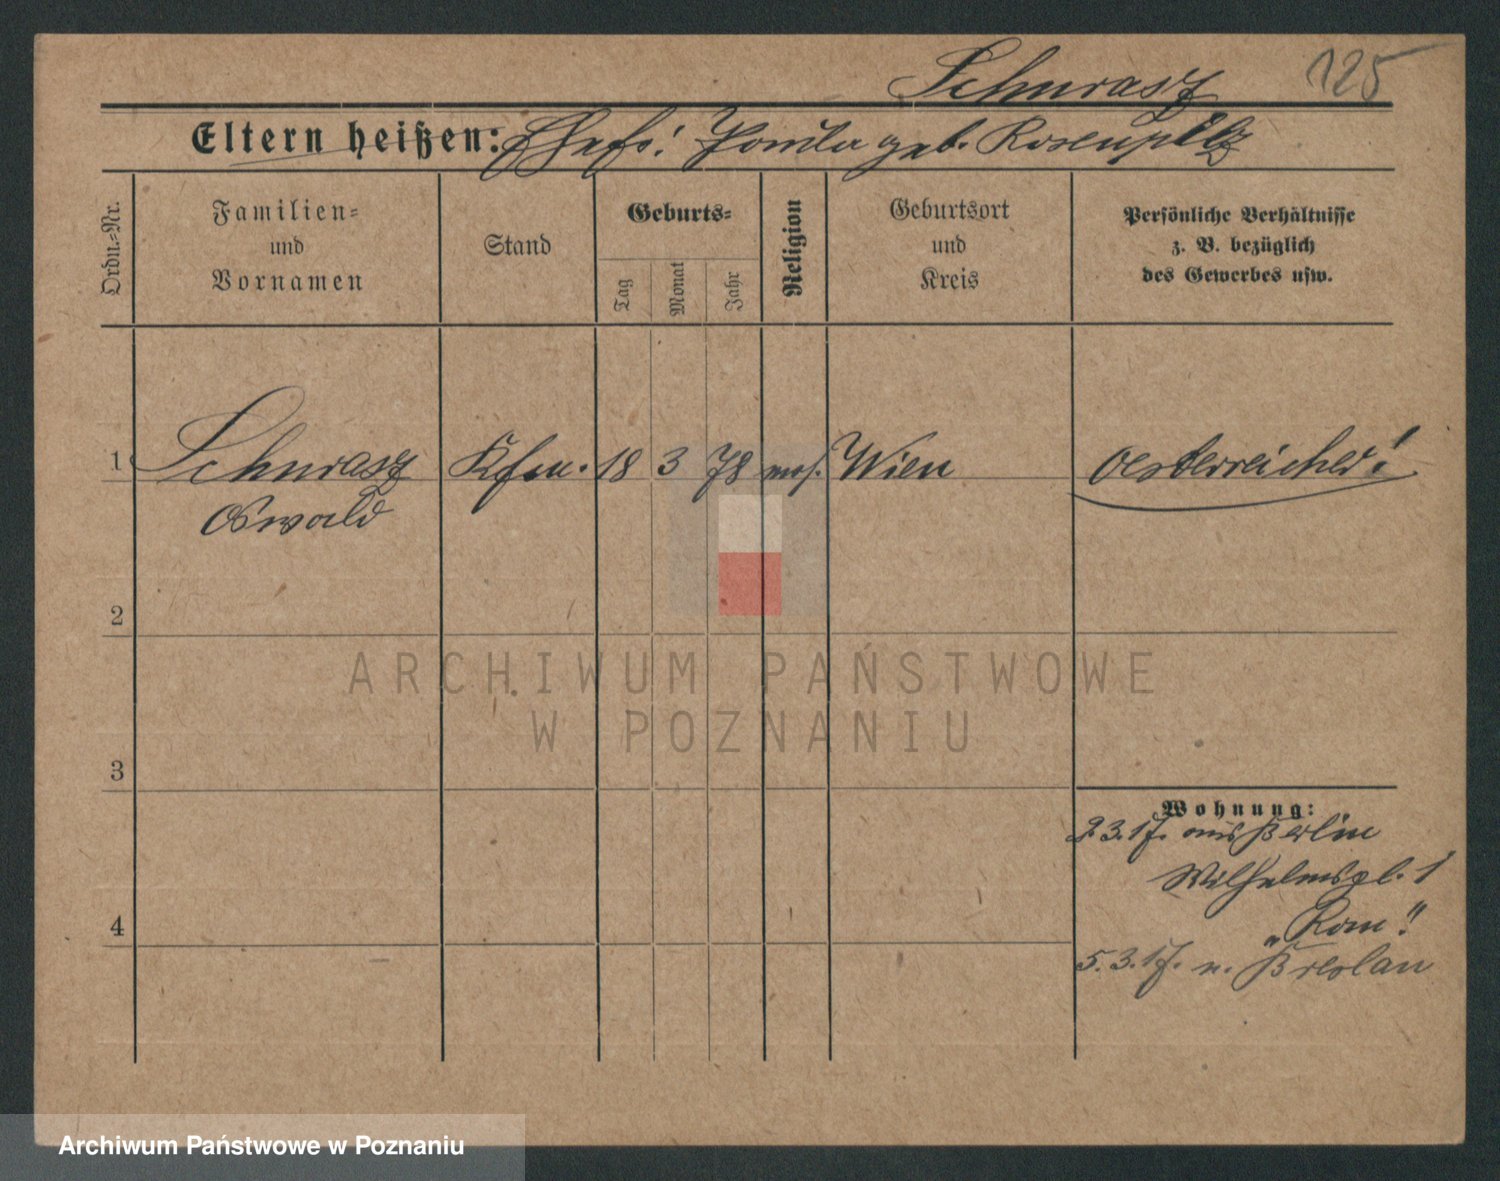 Schwarz 125
Eltern heißen: Ehefr: geb.
Ordn.-Nr.
Familien-
und
Vornamen
Stand
Geburts-
Tag
Monat
Jahr
Religion
Geburtsort
und
Kreis
Persönliche Verhältnisse
z. B. bezüglich
des Gewerbes usw.
1 Kfm. 18 3 78 mos. Wien Oesterreicher!
Oswald
2
3
4
Wohnung:
2.3.17. aus Berlin
Wilhelmspl. 1
„Rom"
5.3.17. n. Breslau
ARCHIWUM PAŃSTWOWE
W POZNANIU
Archiwum Państwowe w Poznaniu